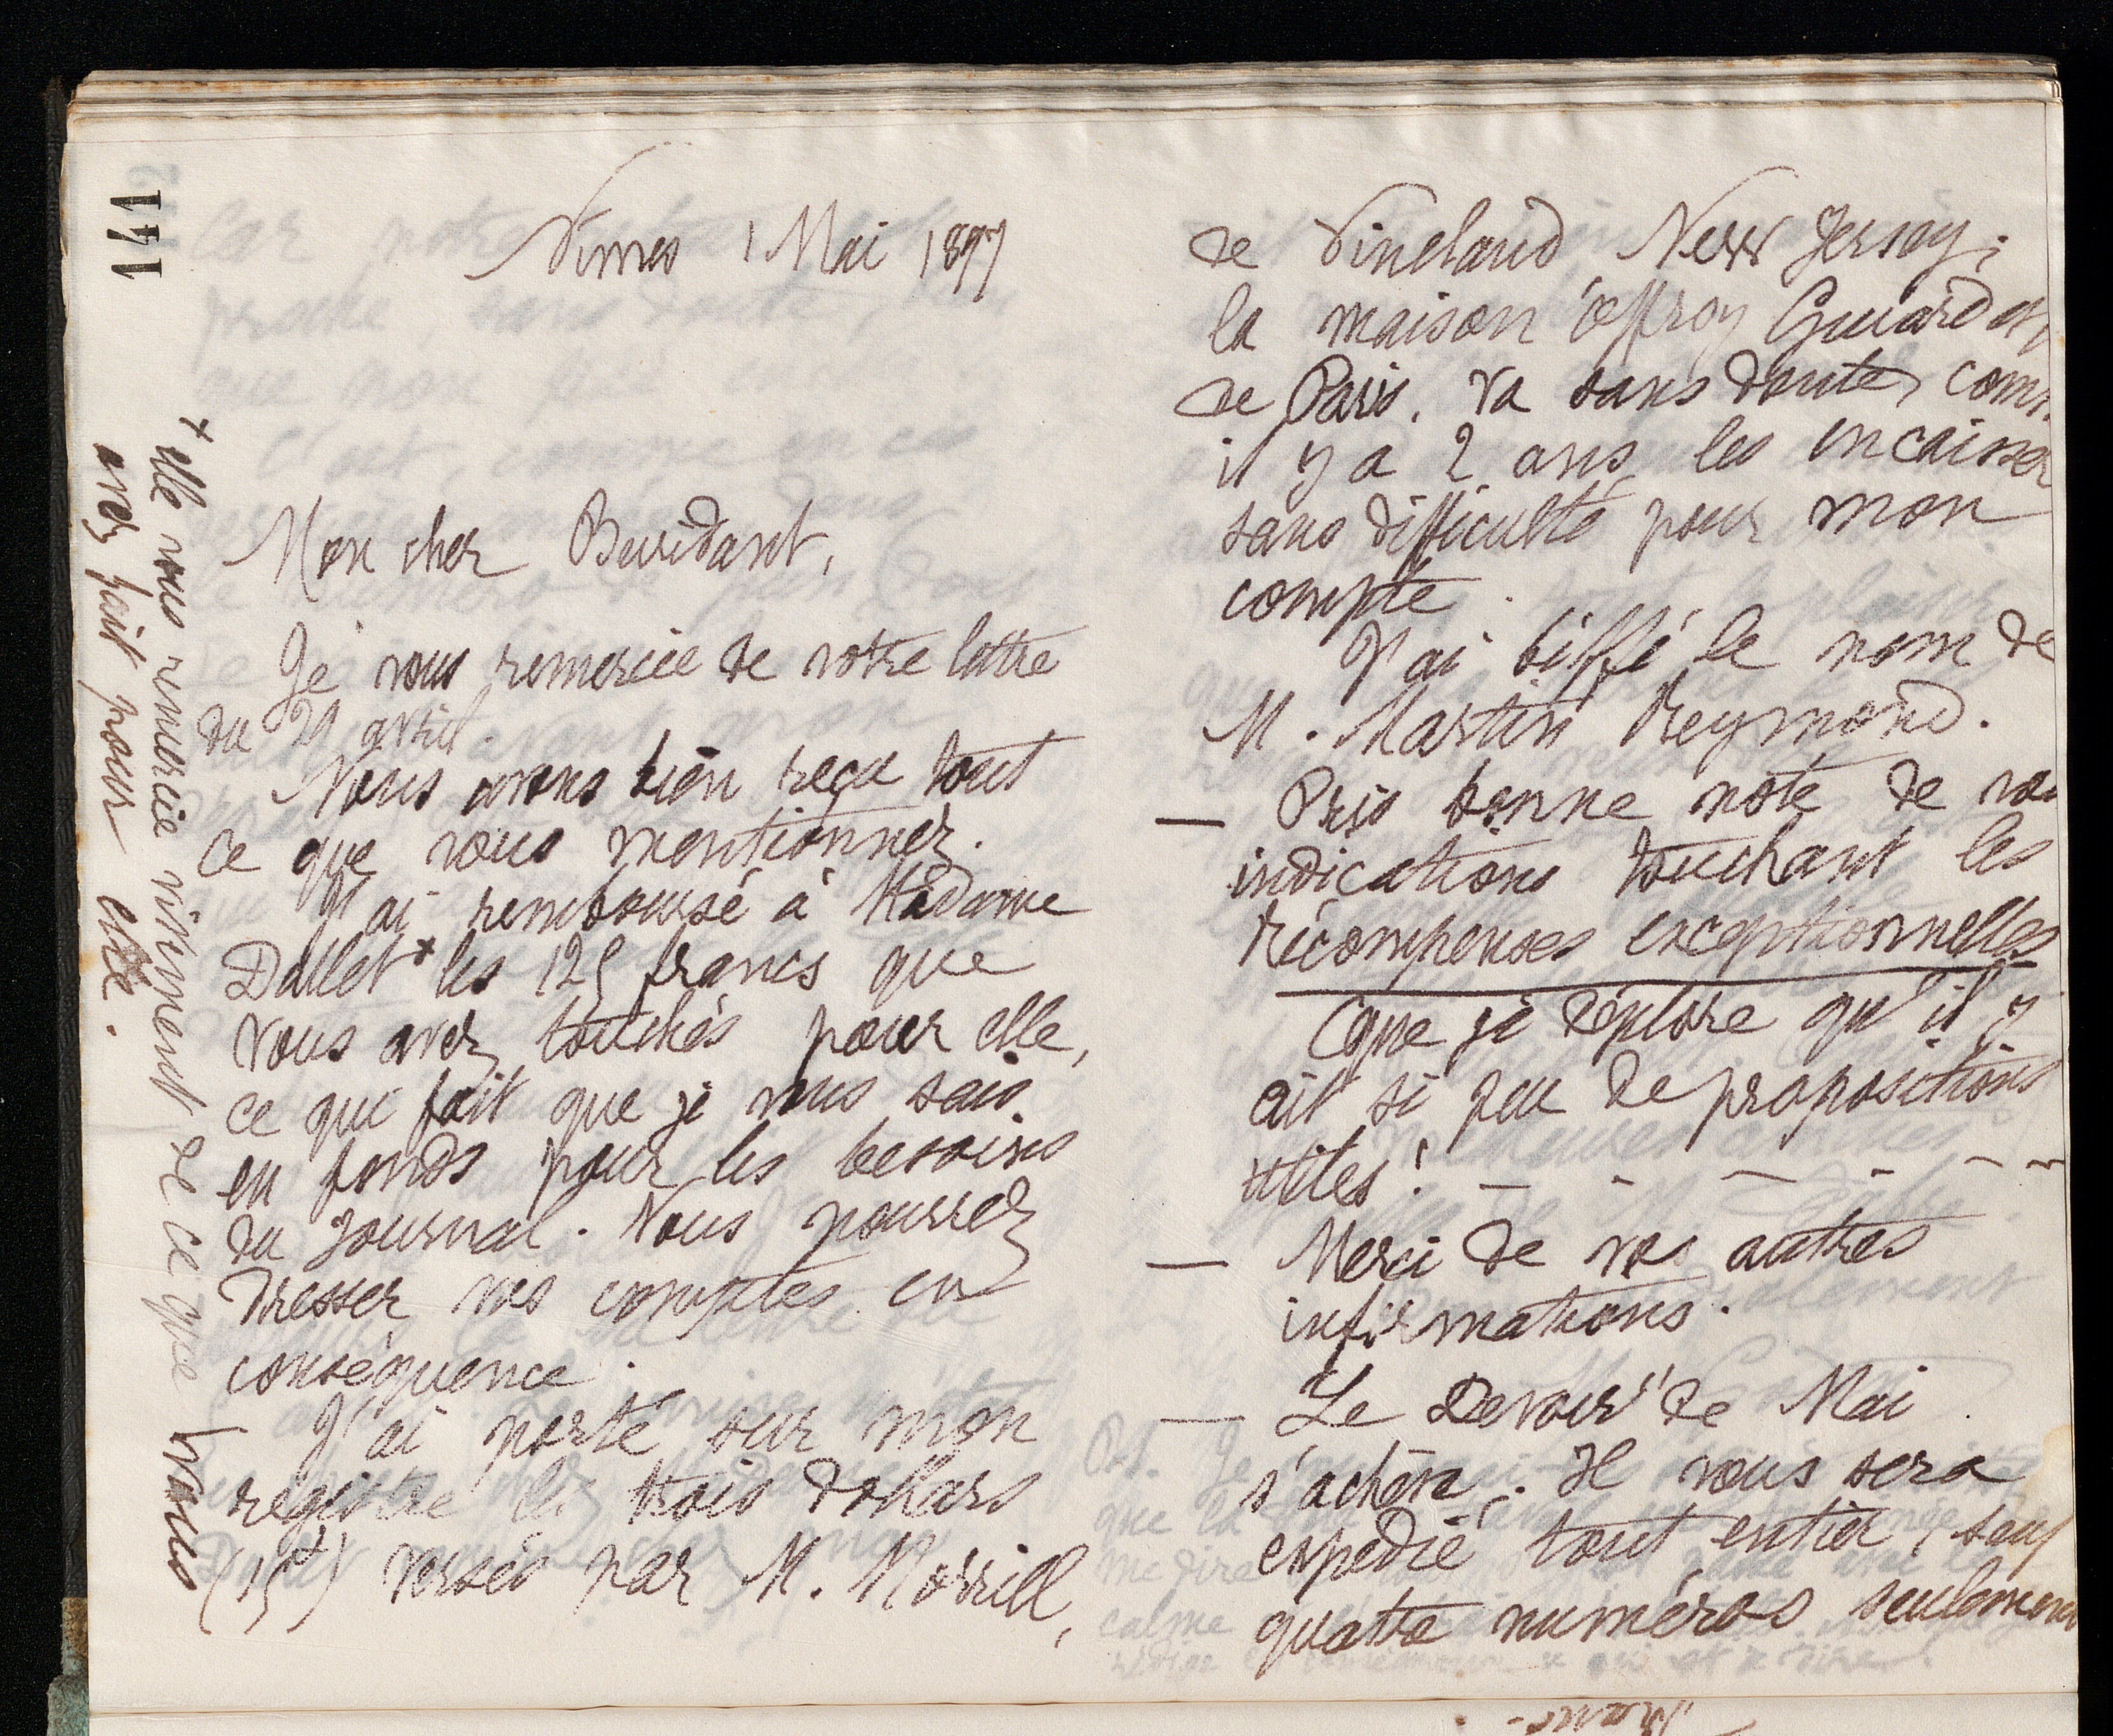 141
Nimes 1 Mai 1897
Mon cher Buridant,
Je vous remercie de votre lettre
du 29 avril.
Nous avons bien reçu tout
ce que vous mentionnez.
J'ai remboursé à Madame
Dallet + les 125 francs que
vous avez touchés pour elle,
ce qui fait que je vous sais
en fonds pour les besoins
du journal. Vous pourrez
dresser vos comptes en
conséquence.
J'ai porté sur mon
registre les trois dollars
(15f) versés par M. Morrill,
+ elle vous remercie vivement de ce que vous
avez fait pour elle.
de Vineland New Jersey;
la maison
de Paris, va sans doute, comm
il y a 2 ans, les encaisser
sans difficulté pour mon
compte.
J'ai biffé le nom de
M. Martin Reymond.
— Pris bonne note de vos
indications touchant les
récompenses exceptionnelles
Que je déplore qu'il y
ait si peu de propositions
utiles! — - — - — —
— Merci de vos autres
informations.
— Le Devoir de Mai
s'achève. Il vous sera
expédié tout entier, sauf
quatre numéros seulement